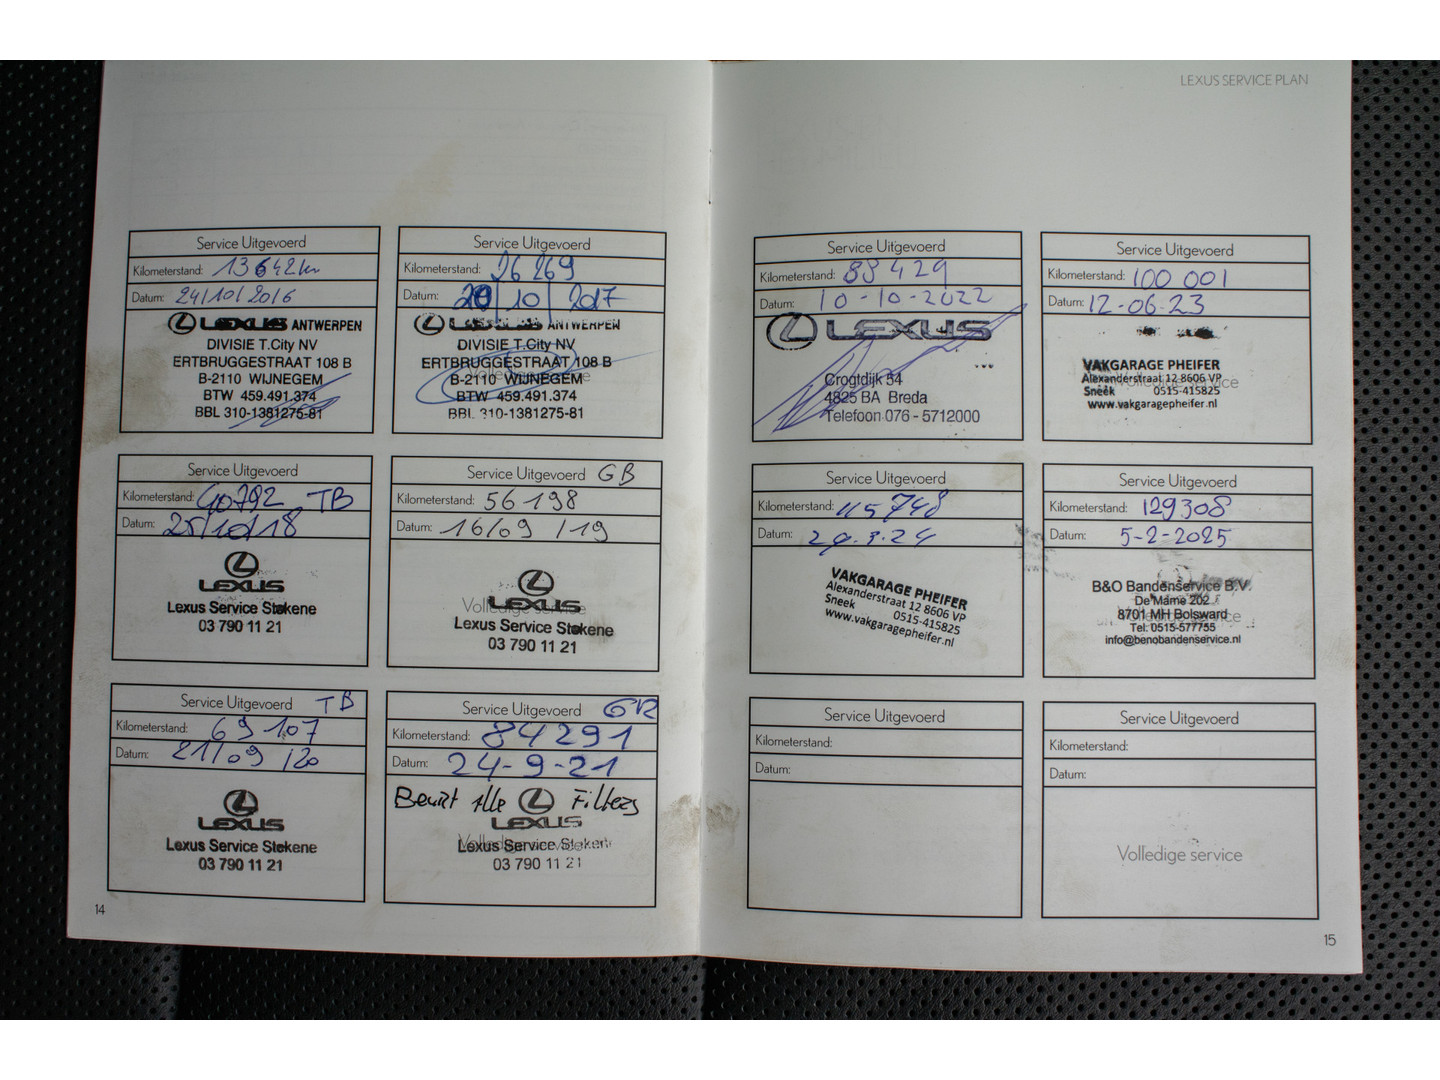 LEXUS SERVICE PLAN
Service Uitgevoerd
Kilometerstand: 13642km
Datum: 24/10/2016
LEXUS ANTWERPEN
DIVISIE T.City NV
ERTBRUGGESTRAAT 108 B
B-2110 WIJNEGEM
BTW 459.491.374
BBL 310-1381275-81
Service Uitgevoerd
Kilometerstand: 26269
Datum: 20/10/2017
LEXUS ANTWERPEN
DIVISIE T.City NV
ERTBRUGGESTRAAT 108 B
B-2110 WIJNEGEM
BTW 459.491.374
BBL 310-1381275-81
Service Uitgevoerd
Kilometerstand: 40792 TB
Datum: 25/10/18
LEXUS
Lexus Service Stekene
03 790 11 21
Service Uitgevoerd GB
Kilometerstand: 56198
Datum: 16/09/19
Volledige service
LEXUS
Lexus Service Stekene
03 790 11 21
Service Uitgevoerd TB
Kilometerstand: 69107
Datum: 21/09/20
LEXUS
Lexus Service Stekene
03 790 11 21
Service Uitgevoerd GR
Kilometerstand: 84291
Datum: 24-9-21
Beurt Alle Filters
LEXUS
Volledige service
Lexus Service Stekene
03 790 11 21
14
Service Uitgevoerd
Kilometerstand: 88429
Datum: 10-10-2022
LEXUS
Crogtdijk 54
4825 BA Breda
Telefoon 076 - 5712000
Service Uitgevoerd
Kilometerstand: 100 001
Datum: 12-06-23
VAKGARAGE PHEIFER
Alexanderstraat 12 8606 VP
Volledige service
Sneek 0515-415825
www.vakgaragepheifer.nl
Service Uitgevoerd
Kilometerstand: 115748
Datum: 29.3.24
VAKGARAGE PHEIFER
Alexanderstraat 12 8606 VP
Sneek 0515-415825
www.vakgaragepheifer.nl
Service Uitgevoerd
Kilometerstand: 129308
Datum: 5-2-2025
B&O Bandenservice B.V.
De Marne 202
8701 MH Bolsward
Tel: 0515-577755
info@benobandenservice.nl
Service Uitgevoerd
Kilometerstand:
Datum:
Service Uitgevoerd
Kilometerstand:
Datum:
Volledige service
15